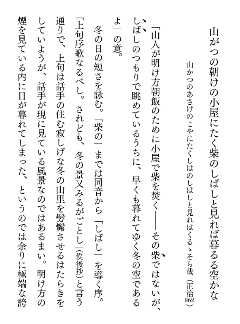 山がつの朝けの小屋にたく柴のしばしと見れば暮るる空かな
山かつのあさけのこやにたくしはのしはしと見れはくるゝそら哉（正治962）
「山人が明け方朝飯のために小屋で柴を焚く――その柴ではないが、
しばしのつもりで眺めているうちに、早くも暮れてゆく冬の空である
よ」の意。
冬の日の短さを詠む。「柴の」までは同音から「しばし」を導く序。
「上句序歌なるべし。されども、冬の景又みるがごとし」（抜後抄）と言う
通りで、上句は話手の住む寂しげな冬の山里を髣髴させるはたらきを
していようが、話手が現に見ている風景なのではあるまい。明け方の
煙を見ている内に日が暮れてしまった、というのでは余りに極端な誇